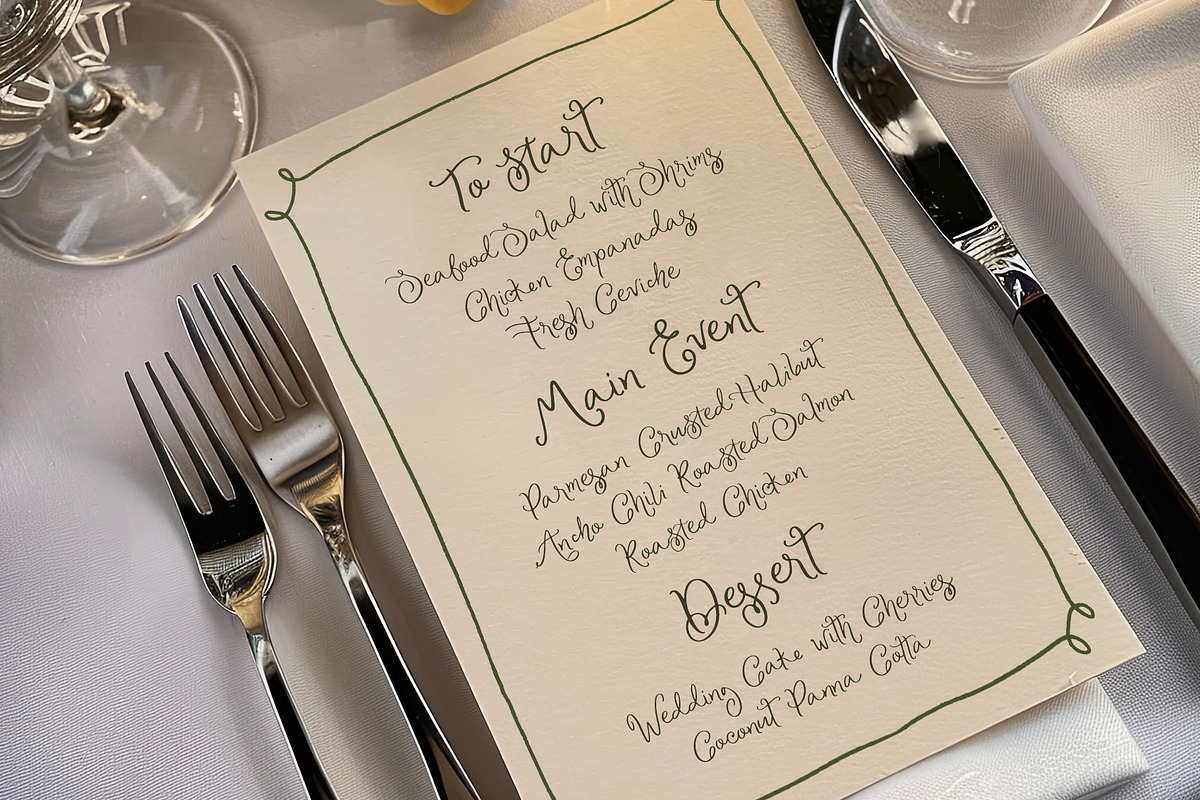 To Start
Seafood Salad with Shrims
Chicken Empanadas
Fresh Ceviche
Main Event
Parmesan Crusted Halibut
Ancho Chili Roasted Salmon
Roasted Chicken
Dessert
Wedding Cake with Cherries
Coconut Panna Cotta